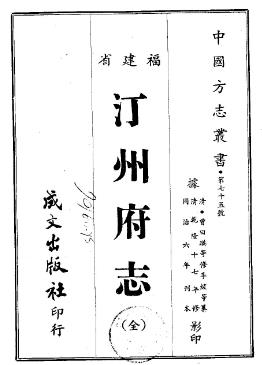 中國方志叢書・第七十五號
據
清・曾曰瑛等修李紱等纂
清乾隆十七年修
同治六年刊本
影印
福建省
汀州府志
(全)
成文出版社印行